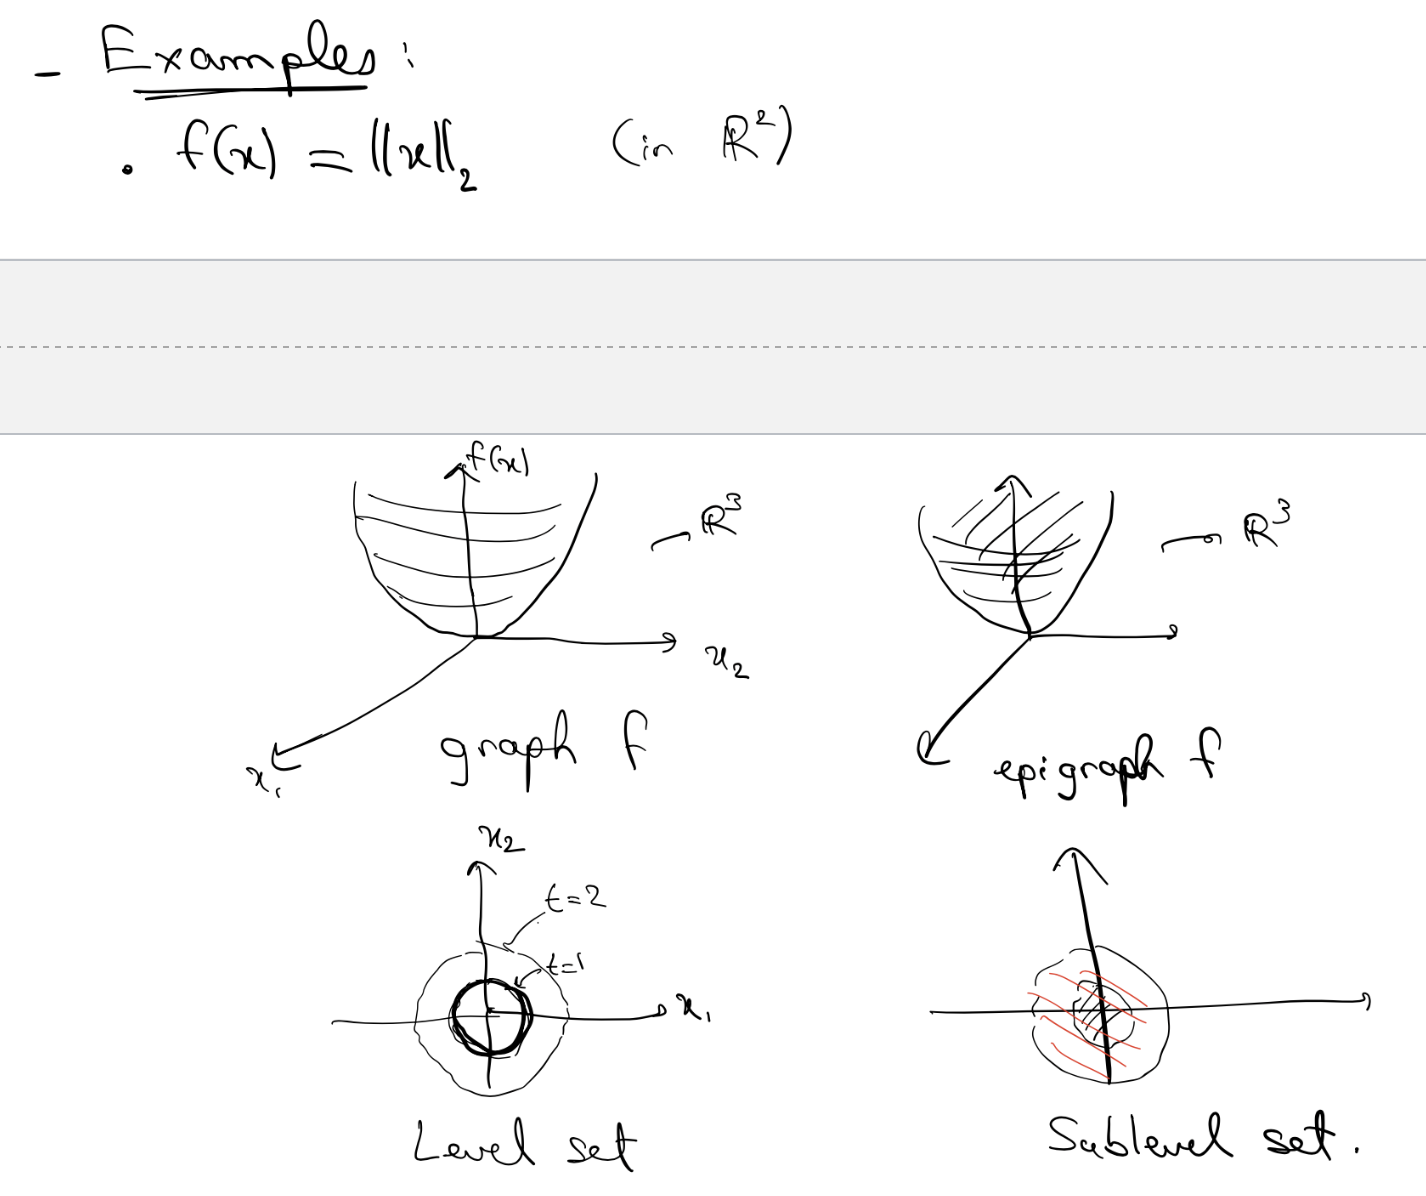 - Examples:
• f(x) = ||x||₂ (in ℝ²)
f(x)
ℝ³
ℝ³
x₂
x₁
graph f
epigraph f
x₂
t=2
t=1
x₁
Level set
Sublevel set.